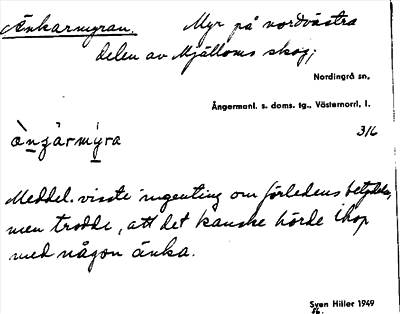 Änkarmyran. Myr på nordvästra
delen av Mjälloms skog;
Nordingrå sn,
Ångermanl. s. doms. tg., Västernorrl. l.
3/6
Meddel. visste ingenting om förledens betydelse,
men trodde, att det kanske hörde ihop
med någon änka.
Sven Hiller 1949